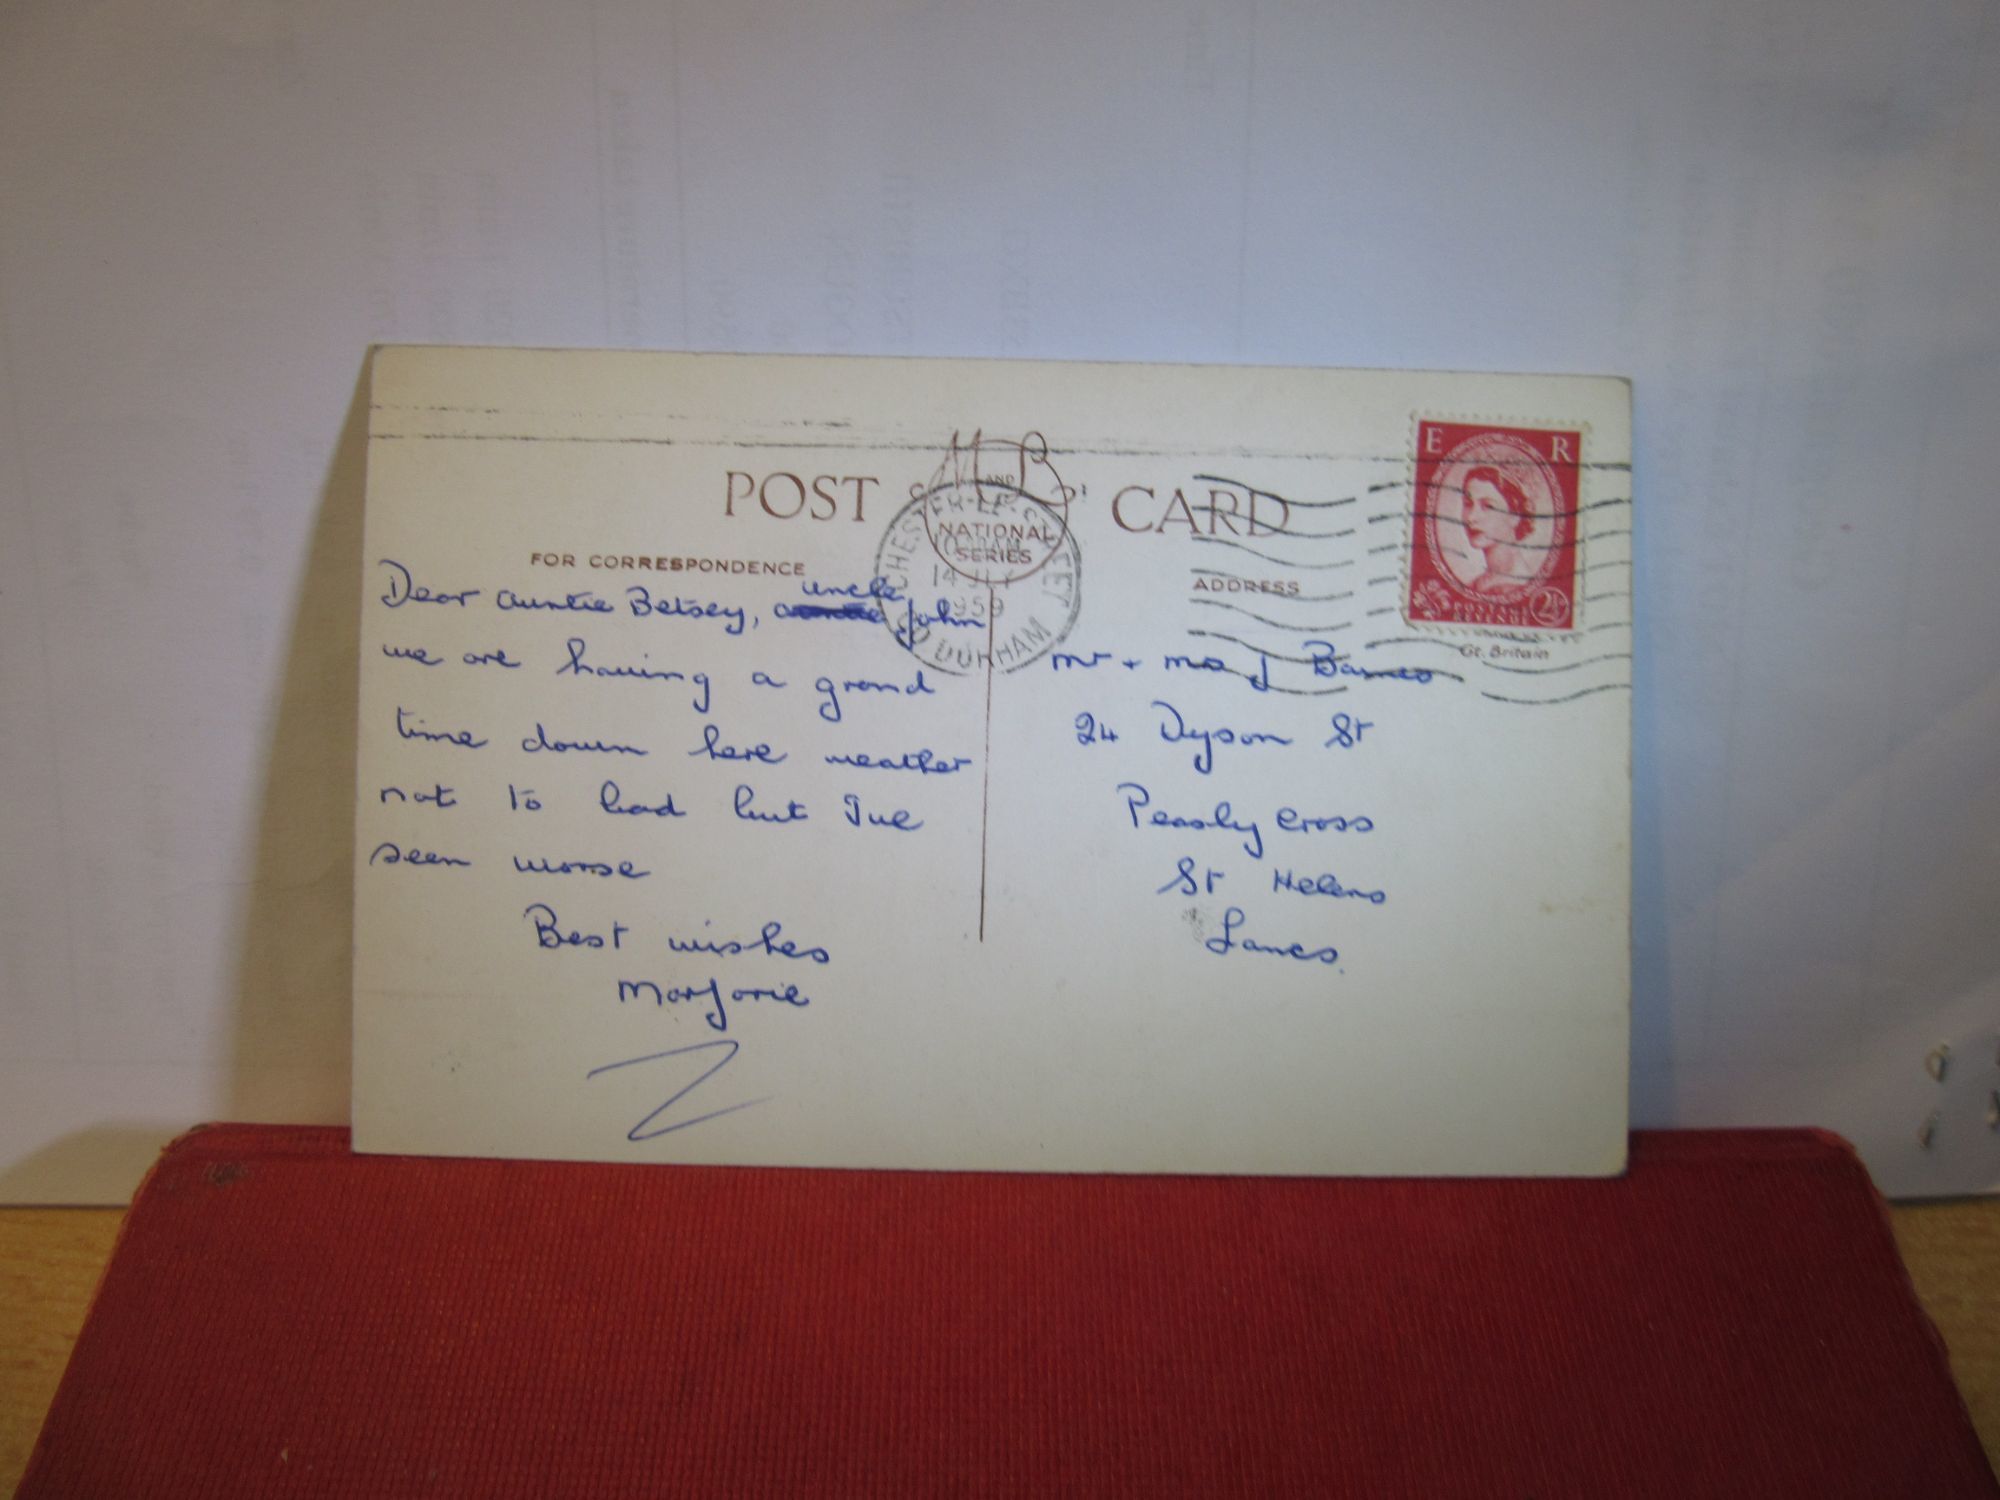 POST CARD
M AND L
NATIONAL
SERIES
CHESTER-LE-STREET
14 JLY
1959
CO DURHAM
FOR CORRESPONDENCE
Dear Auntie Betsey, uncle John
we are having a grand
time down here weather
not to bad but I've
seen worse
Best wishes
Marjorie
ADDRESS
E R
POSTAGE
REVENUE
2½
Gt. Britain
Mr + Mrs J Barnes
24 Dyson St
Peasly Cross
St Helens
Lancs.